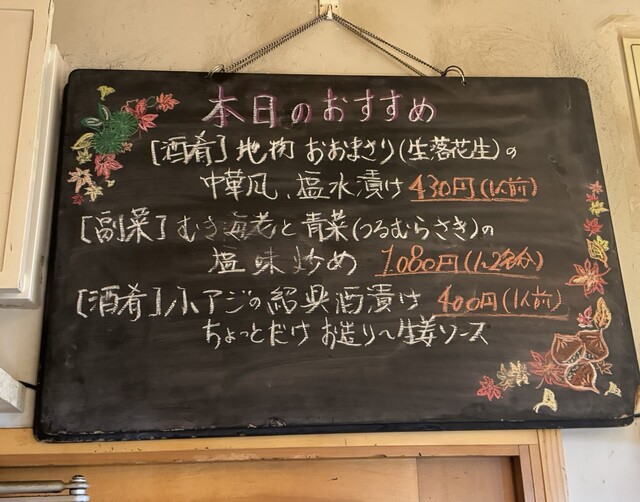 本日のおすすめ
[酒肴] 地物 おおまさり(生落花生)の
中華風、塩水漬け 430円(1人前)
[副菜] むき海老と青菜(つるむらさき)の
塩味炒め 1,080円(1~2名分)
[酒肴] 小アジの紹興酒漬け 400円(1人前)
ちょっとだけ お造り〜生姜ソース